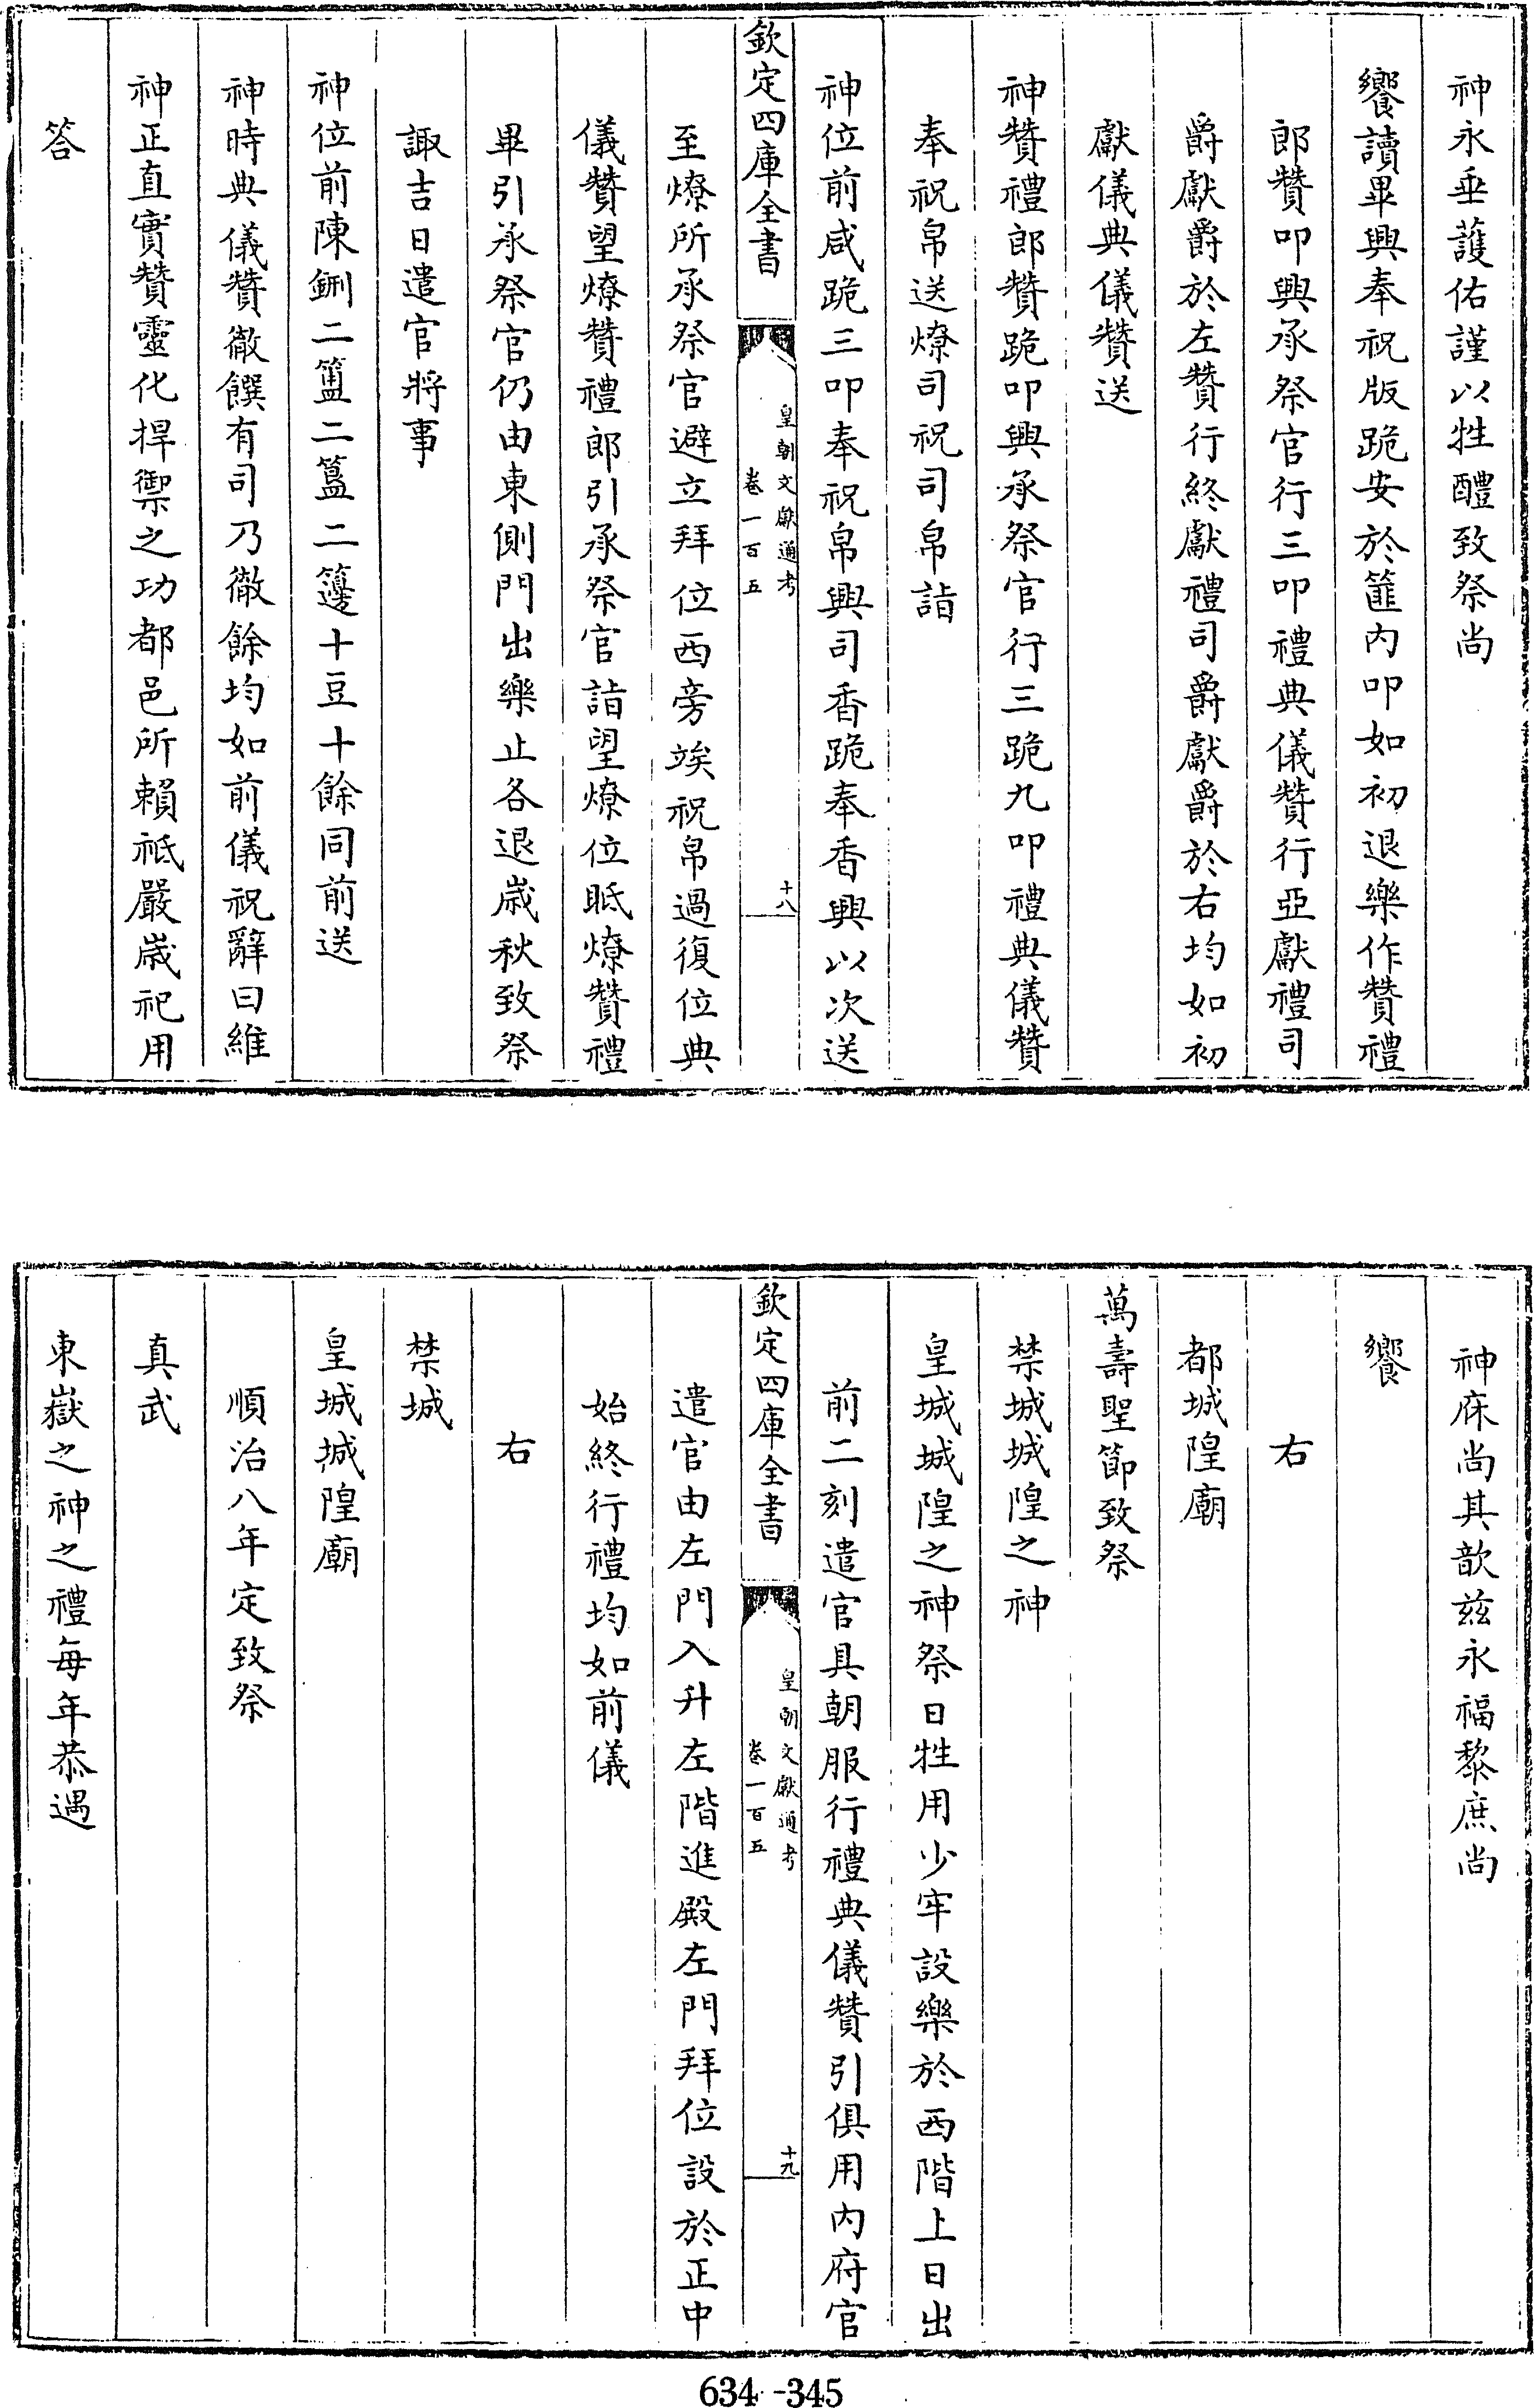 神永垂䕶佑謹以牲醴致祭尚
饗讀畢興奉祝版跪安於篚内叩如初退樂作贊禮
郎贊叩興承祭官行三叩禮典儀贊行亞獻禮司
爵獻爵於左贊行終獻禮司爵獻爵於右均如初
獻儀典儀贊送
神贊禮郎贊跪叩興承祭官行三跪九叩禮典儀贊
奉祝帛送燎司祝司帛詣
神位前咸跪三叩奉祝帛興司香跪奉香興以次送
欽定四庫全書
皇朝文獻通考
卷一百五
十八
至燎所承祭官避立拜位西旁竢祝帛過復位典
儀贊望燎贊禮郎引承祭官詣望燎位眡燎贊禮
畢引承祭官仍由東側門出樂止各退歲秋致祭
諏吉日遣官將事
神位前陳鉶二簠二簋二籩十豆十餘同前送
神時典儀贊徹饌有司乃徹餘均如前儀祝辭曰維
神正直實贊靈化捍禦之功都邑所賴祗嚴歲祀用
答
神庥尚其歆兹永福黎庶尚
饗
右
都城隍廟
萬壽聖節致祭
禁城城隍之神
皇城城隍之神祭日牲用少牢設樂於西階上日出
前二刻遣官具朝服行禮典儀贊引俱用内府官
欽定四庫全書
皇朝文獻通考
卷一百五
十九
遣官由左門入升左階進殿左門拜位設於正中
始終行禮均如前儀
右
禁城
皇城城隍廟
順治八年定致祭
真武
東嶽之神之禮每年恭遇
634-345